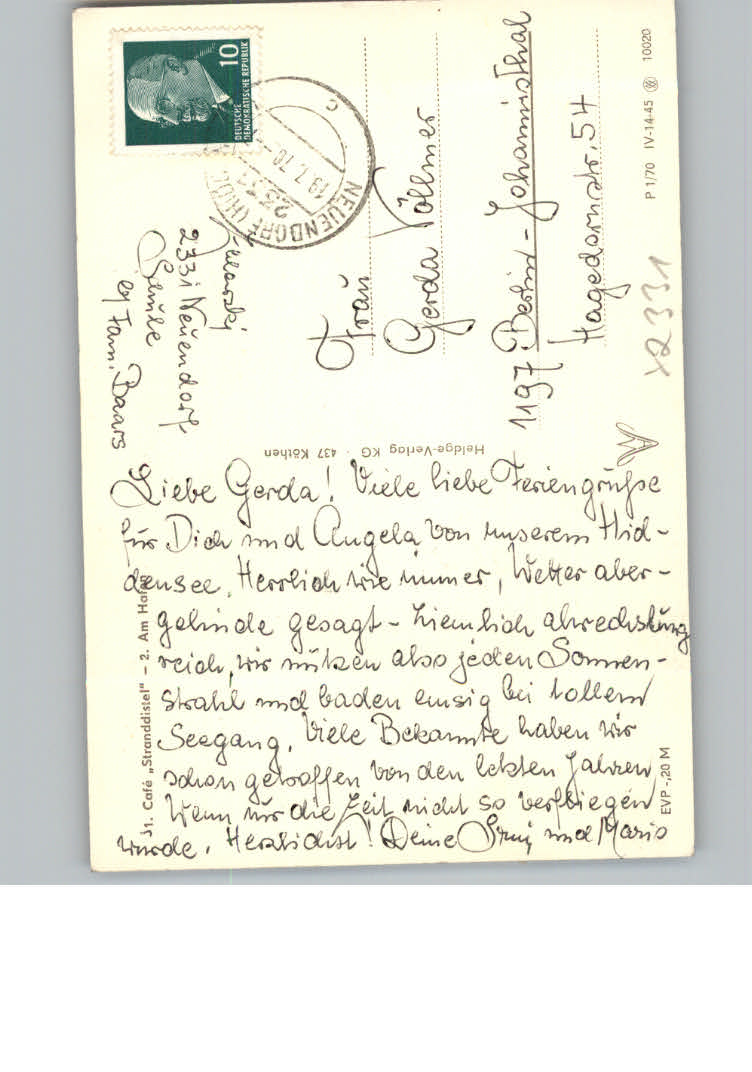 Liebe Gerda! Viele liebe Feriengrüße
für Dich und Angela von unserem Hid-
densee. Herrlich wie immer, Wetter aber-
gelinde gesagt - ziemlich abwechslung
reich, wir nützen also jeden Sonnen-
strahl und baden emsig bei tollem
Seegang. Viele Bekannte haben wir
schon getroffen von den letzten Jahren
Wenn nur die Zeit nicht so verfliegen
würde. Herzlichst! Deine und Mario
2331 Neuendorf
Schule
by Fam. Baars
Frau
Gerda Völlmer
1197 Berlin-Johannisthal
Hagedornstr. 54
x2331
10
DEUTSCHE
DEMOKRATISCHE REPUBLIK
2331 NEUENDORF
c
1. Café „Stranddistel" - 2. Am
Heldge-Verlag KG · 437 Köthen
EVP -,20 M
P 1/70 IV-14-45 10020